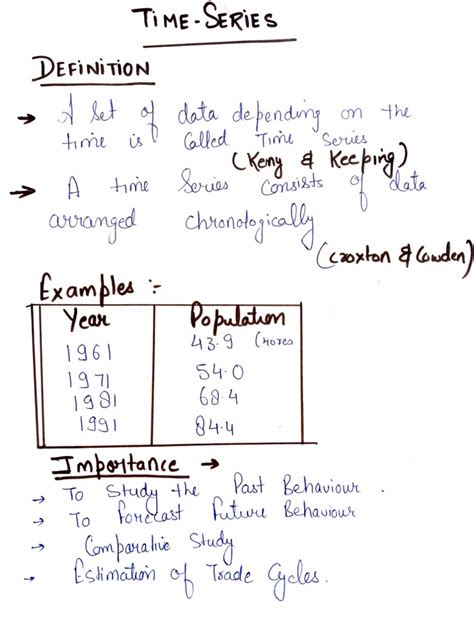 TIME-SERIES
DEFINITION
→ A set of data depending on the
time is Called Time Series
(Keny & Keeping)
→ A time Series Consists of data
arranged chronologically
(Croxton & Cowden)
Examples :-
Year Population
1961 43.9 Crores
1971 54.0
1981 68.4
1991 84.4
Importance →
→ To Study the Past Behaviour.
→ To Forecast Future Behaviour
→ Comparative Study
→ Estimation of Trade Cycles.